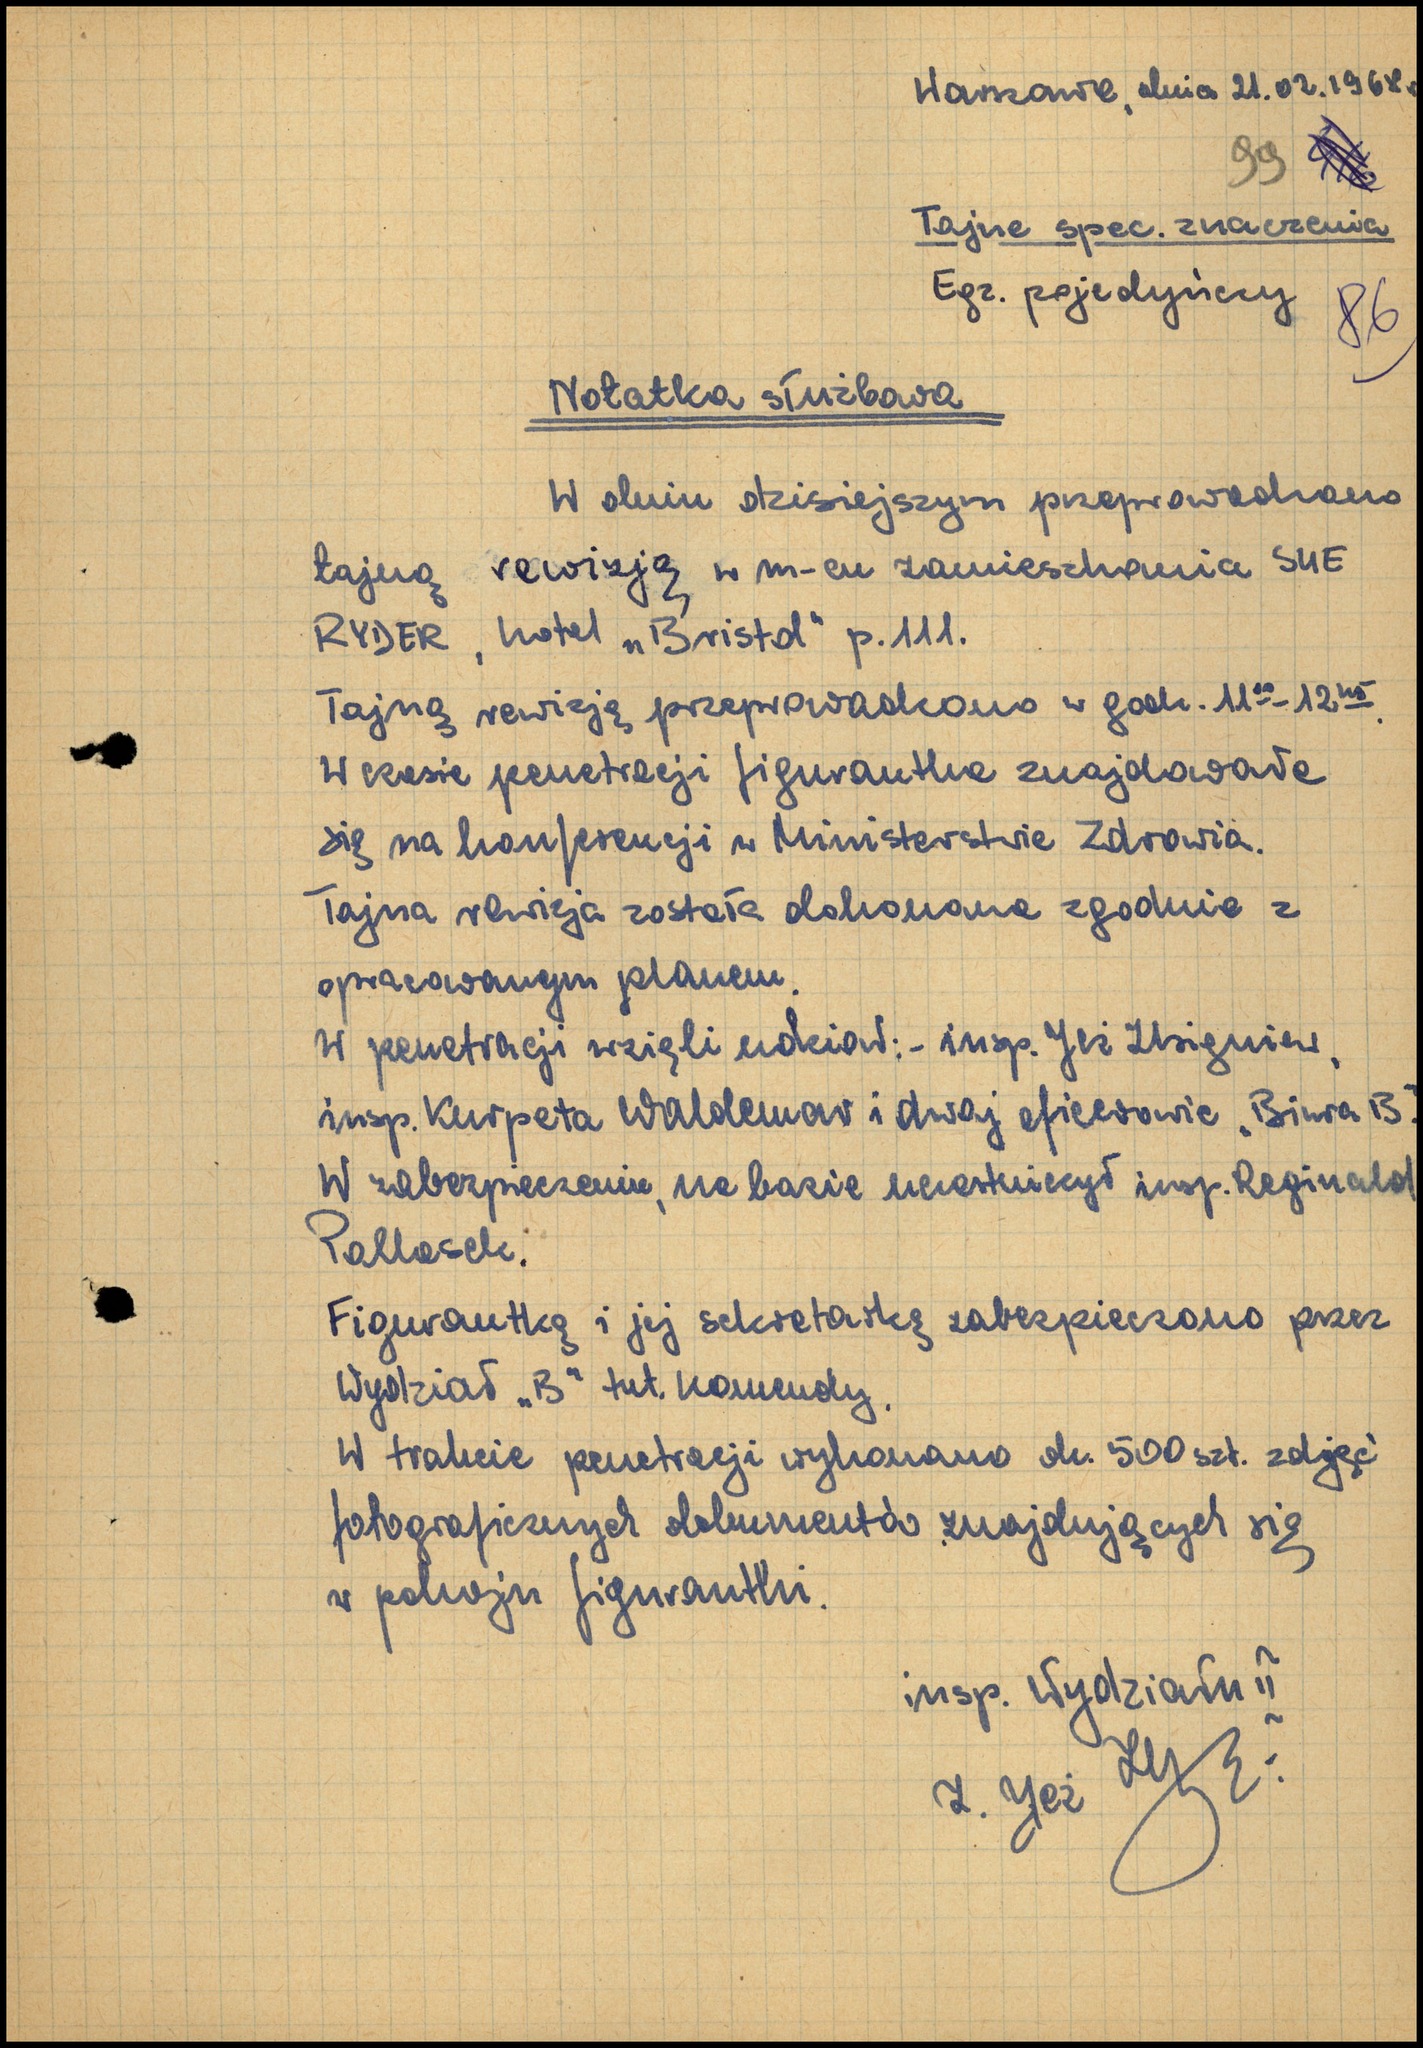 Warszawa, dnia 21.02.1968r
99
Tajne spec. znaczenia
Egz. pojedyńczy
86
Notatka służbowa
W dniu dzisiejszym przeprowadzono
tajną rewizję w m-cu zamieszkania SUE
RYDER, hotel „Bristol" p. 111.
Tajną rewizję przeprowadzono w godz. 11⁰⁰-12⁴⁵.
W czasie penetracji figurantka znajdowała
się na konferencji w Ministerstwie Zdrowia.
Tajna rewizja została dokonana zgodnie z
opracowanym planem.
W penetracji wzięli udział:- insp. Jeż Zbigniew,
insp. Kurpeta Waldemar i dwaj oficerowie „Biura B".
W zabezpieczeniu, na bazie uczestniczył insp. Reginald
Pallasek.
Figurantkę i jej sekretarkę zabezpieczono przez
Wydział „B" tut. Komendy.
W trakcie penetracji wykonano ok. 500 szt. zdjęć
fotograficznych dokumentów znajdujących się
w pokoju figurantki.
insp. Wydziału II
Z. Jeż